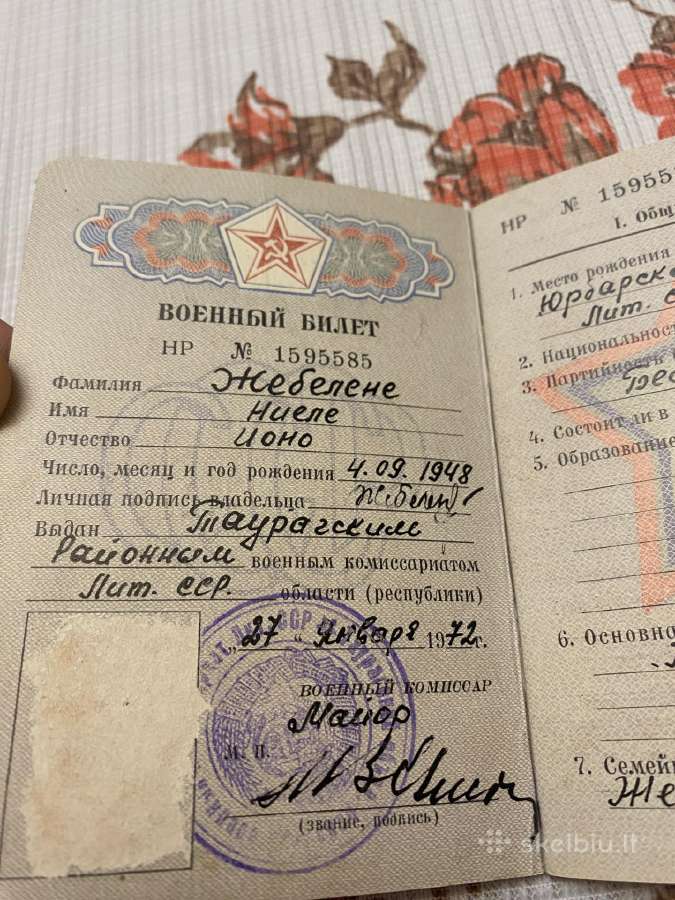 ВОЕННЫЙ БИЛЕТ
НР № 1595585
Фамилия Жебелене
Имя Ниеле
Отчество Ионо
Число, месяц и год рождения 4.09.1948
Личная подпись владельца
Выдан Таурагским
Районным военным комиссариатом
Лит. ССР. области (республики)
„27“ Января 1972 г.
ВОЕННЫЙ КОМИССАР
Майор
М. П.
(звание, подпись)
НР № 15955
I. Общ
1. Место рождения
Юрбарск
Лит. С
2. Националност
3. Партийность
Бес
4. Состоит ли в
5. Образование
6. Основна
7. Семей
Же
skelbiu.lt